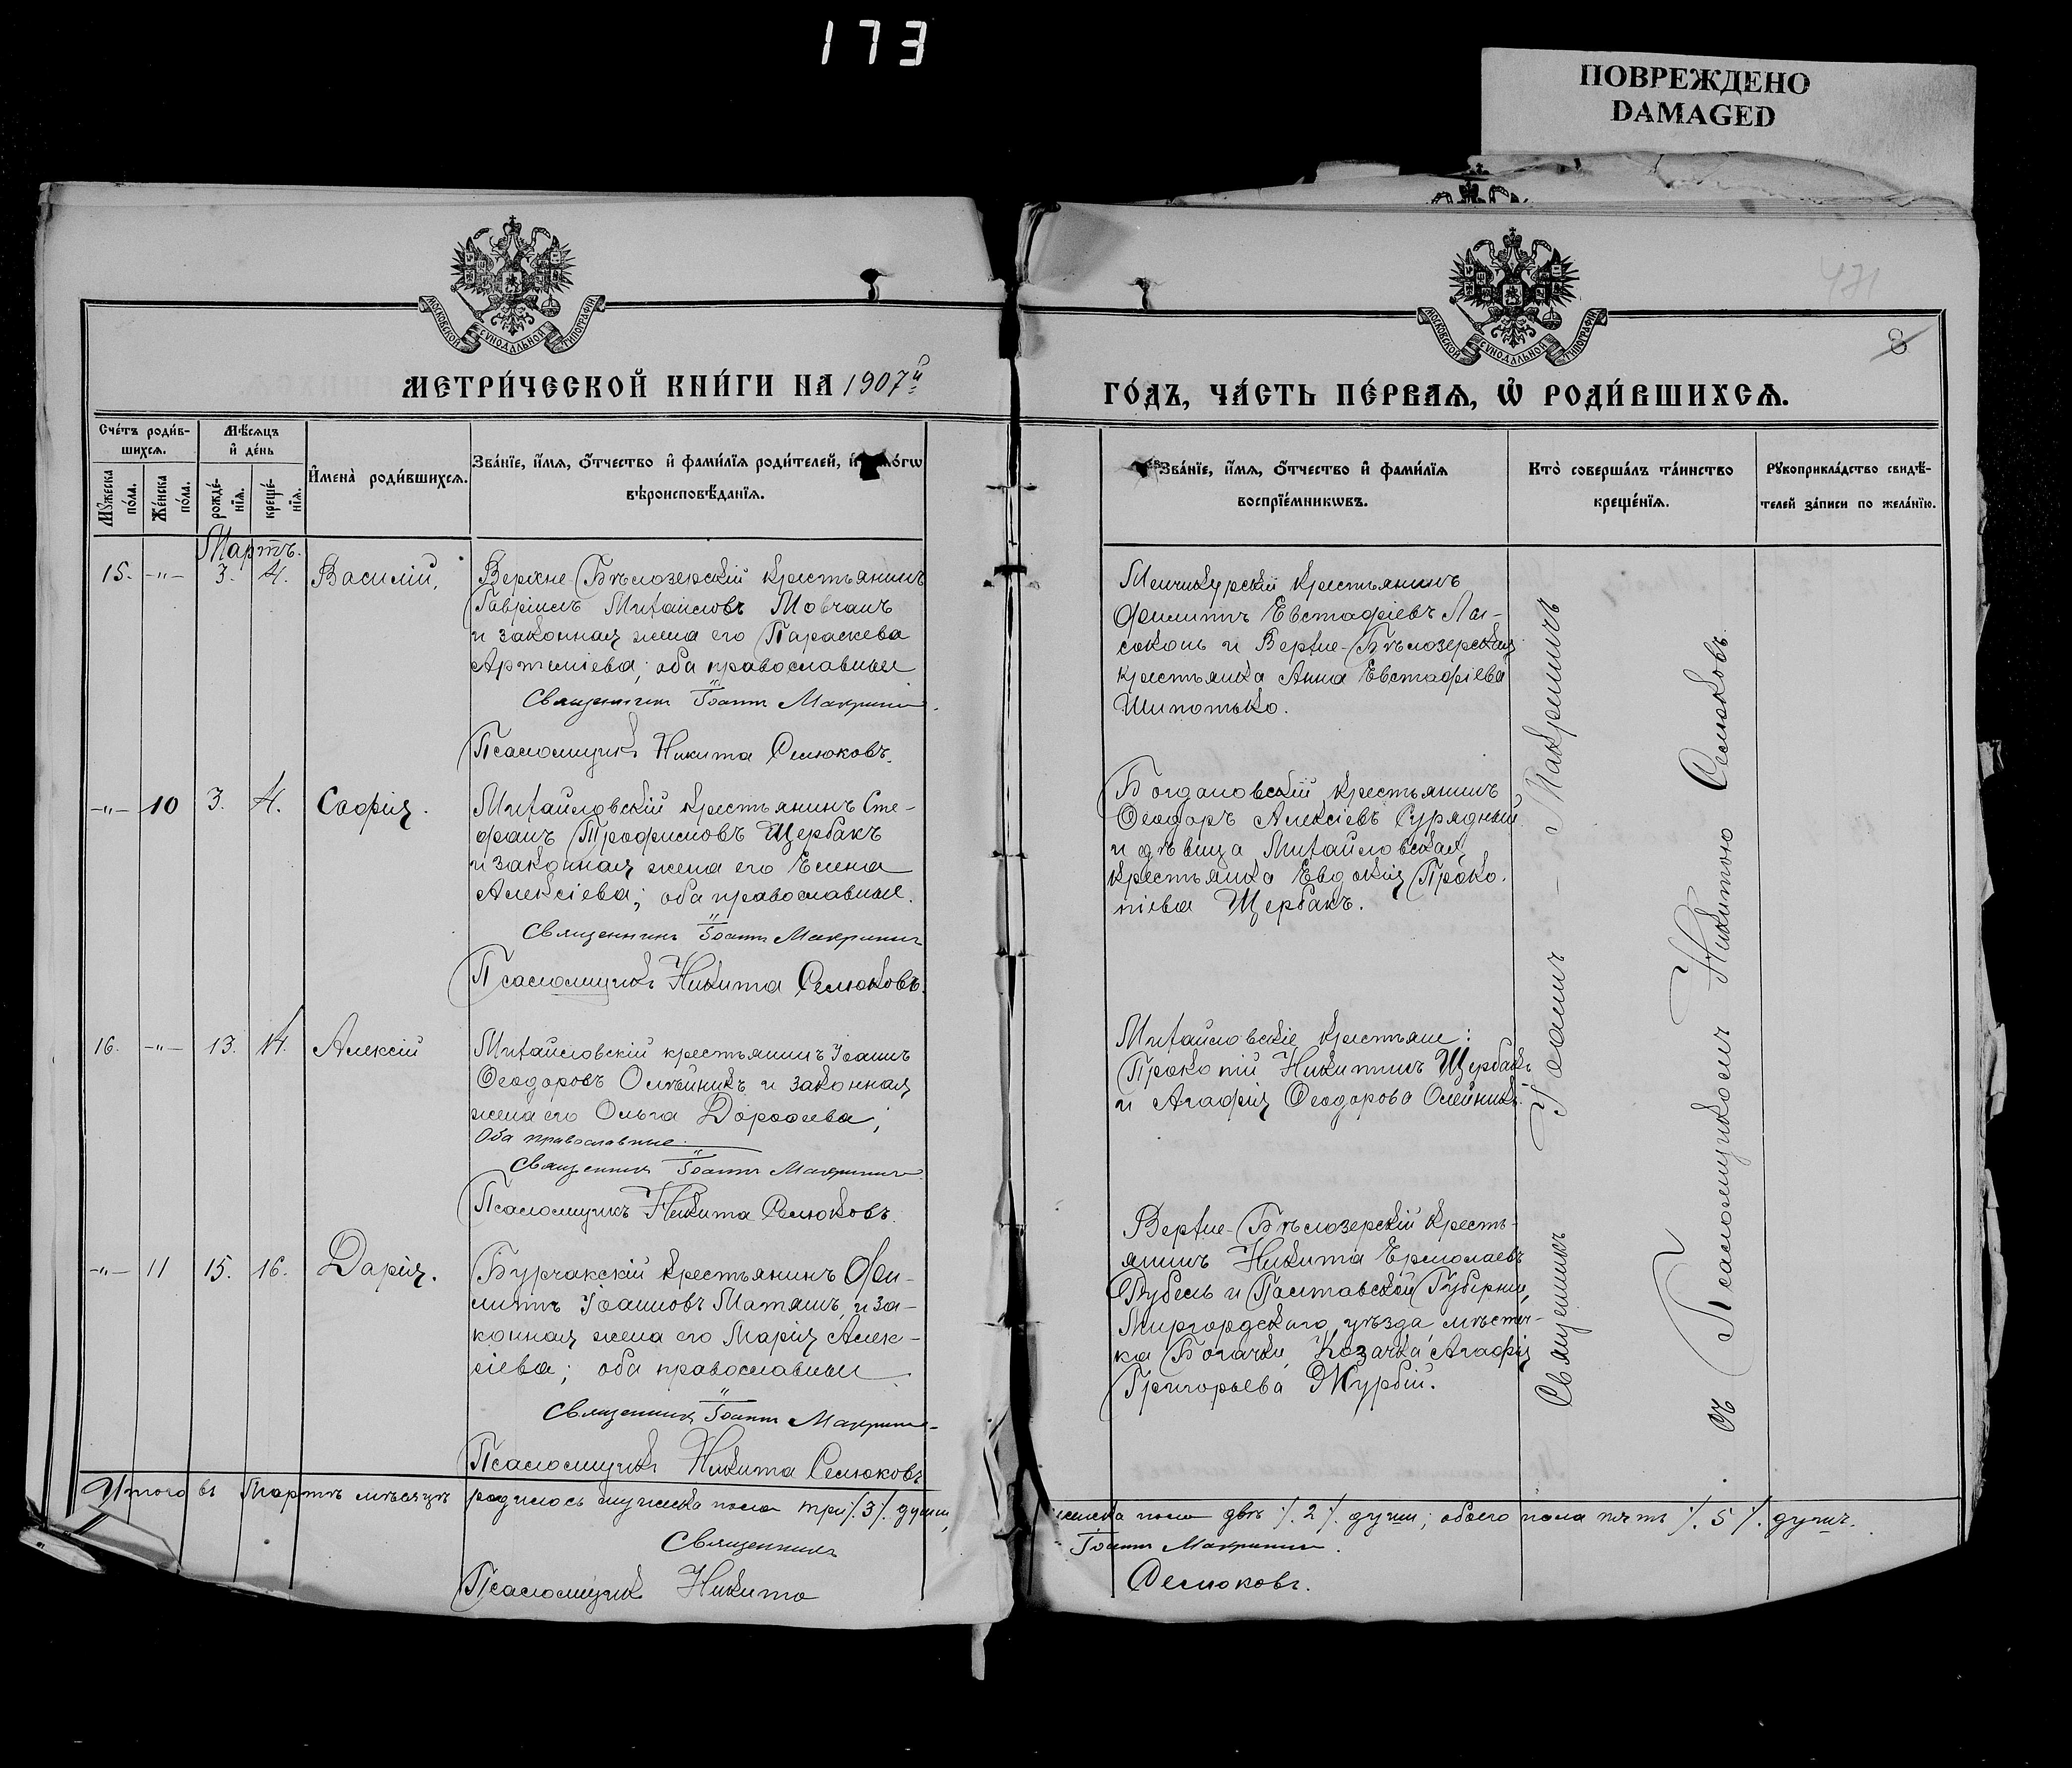 173
ПОВРЕЖДЕНО
DAMAGED
МОСКОВСКОЙ СѴНОДАЛЬНОЙ ТИПОГРАФІИ
МОСКОВСКОЙ СѴНОДАЛЬНОЙ ТИПОГРАФІИ
471
8
МЕТРИ́ЧЕСКОЙ КНИ́ГИ НА 1907й
ГО́ДЪ, ЧА́СТЬ ПЕ́РВАѦ, Ѡ҆ РОДИ́ВШИХСѦ.
Сче́тъ роди́в-
шихсѧ.
Мꙋ́жеска по́ла.
Же́нска по́ла.
Мѣ́сѧцъ
и҆ де́нь
рожде́-
нїѧ.
креще́-
нїѧ.
И҆мена̀ роди́вшихсѧ.
Зва́нїе, и҆́мѧ, ѻ҆́тчество и҆ фами́лїѧ роди́телей, и҆
вѣроисповѣ́данїѧ.
Зва́нїе, и҆́мѧ, ѻ҆́тчество и҆ фами́лїѧ
воспрїе́мникѡвъ.
Кто̀ соверша́лъ та́инство
креще́нїѧ.
Рꙋкоприкла́дство свидѣ́-
телей за́писи по жела́нїю.
Мартъ.
15. -"- 3. 4. Василій.
Верхне-Бѣлозерскій крестьянинъ
Гавріилъ Михаиловъ Мовчанъ
и законная жена его Параскева
Артеміева; оба православные
Священникъ Іоаннъ Макринич
Псаломщикъ Никита Селюковъ.
Менчикурскій крестьянинъ
Филиппъ Евстафіевъ Ла-
соконь и Верхне-Бѣлозерская
крестьянка Анна Евстафіева
Шипотько.
-"- 10 3. 4. Софія.
Михайловскій крестьянинъ Сте-
фанъ Трофимовъ Щербакъ
и законная жена его Елена
Алексіева; оба православные.
Священникъ Іоаннъ Макринич
Псаломщикъ Никита Селюковъ.
Богдановскій крестьянинъ
Ѳеодоръ Алексіевъ Сурядный
и дѣвица Михайловская
крестьянка Евдокія Проко-
піева Щербакъ.
16. -"- 13. 14. Алексій
Михайловскій крестьянинъ Іоаннъ
Ѳеодоровъ Олѣйникъ и законная
жена его Ольга Дороѳеева;
Оба православные.
Священникъ Іоаннъ Макринич
Псаломщикъ Никита Селюковъ.
Михайловскіе крестьяне:
Прокопій Никитинъ Щербакъ
и Агафія Ѳеодорова Олейникъ.
-"- 11 15. 16. Дарія.
Бурчакскій крестьянинъ Фи-
липпъ Іоанновъ Маташъ и за-
конная жена его Марія Алек-
сіева; оба православные
Священникъ Іоаннъ Макринич
Псаломщикъ Никита Селюковъ
Верхне-Бѣлозерскій кресть-
янинъ Никита Ермолаевъ
Рубель и Полтавской Губерніи,
Миргородскаго уѣзда мѣстеч-
ка Богачки Козачка Агафія
Григорьева Журбій.
Священникъ Іоаннъ Макриничъ
съ Псаломщикомъ Никитою Селюковъ.
Итого въ Мартѣ мѣсяцѣ родилось мужеска пола три /.3/. души,
женска пола двѣ /.2/. души; обоего пола пять /.5/. душъ.
Священникъ Іоаннъ Макринич.
Псаломщикъ Никита Селюковъ.